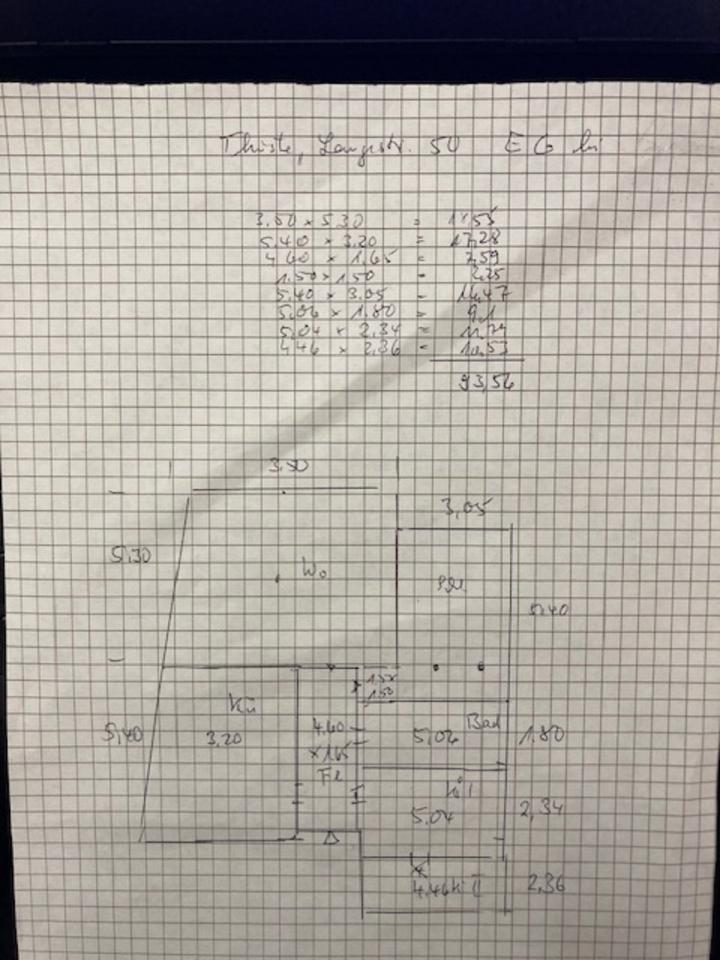 Thüste, Langestr. 50 EG li
3.50 × 5.30 = 18,55
5.40 × 3.20 = 17,28
4.60 × 1.65 = 7,59
1.50 × 1.50 = 2,25
5.40 × 3.05 = 16,47
5,06 × 1.80 = 9,1
5,04 × 2,34 = 11,79
4,46 × 2,36 = 10,53
93,56
3.50
3,05
5,30
Wo
5,40
1.50×
1.50
Kü
5,40
3.20
4.60
×1,65
Fl
5,06
Bad
1,80
Ki I
5.04
2,34
4.46
Ki II
2,36